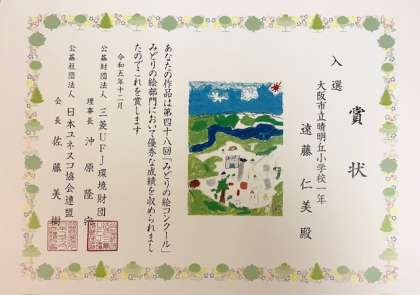 賞状
入選
大阪市立晴明丘小学校一年
遠藤 仁美 殿
あなたの作品は第四十八回「みどりの絵コンクール」
みどりの絵部門において優秀な成績を収められまし
たのでこれを賞します
令和五年十二月
公益財団法人 三菱UFJ環境財団
理事長 沖原隆宗
公益社団法人 日本ユネスコ協会連盟
会長 佐藤美樹